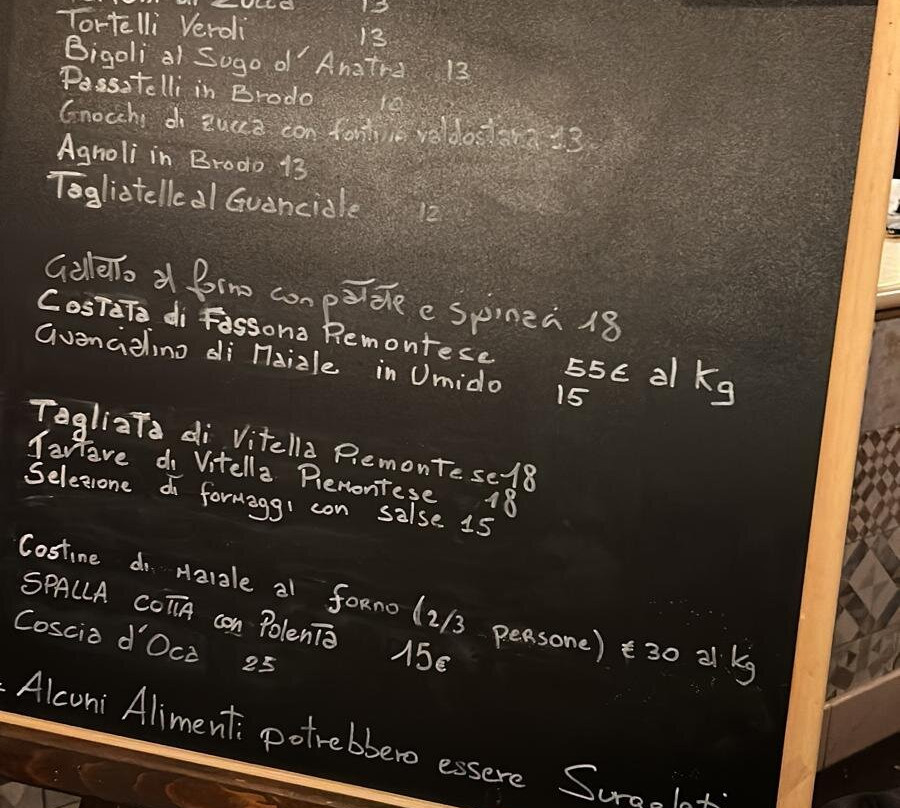 Tortelli di Zucca 13
Tortelli Verdi 13
Bigoli al Sugo d'Anatra 13
Passatelli in Brodo 10
Gnocchi di zucca con fontina valdostana 13
Agnoli in Brodo 13
Tagliatelle al Guanciale 12
Galletto al forno con patate e Spinaci 18
Costata di Fassona Piemontese 55€ al Kg
Guancialino di Maiale in Umido 15
Tagliata di Vitella Piemontese 18
Tartare di Vitella Piemontese 18
Selezione di formaggi con salse 15
Costine di Maiale al forno (2/3 persone) €30 al Kg
SPALLA COTTA con Polenta 15€
Coscia d'Oca 25
Alcuni Alimenti potrebbero essere Surgelati